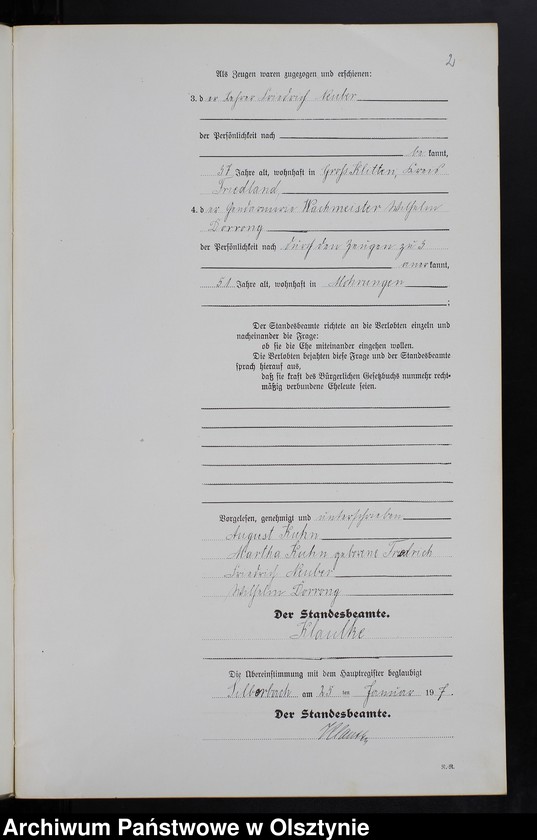 2
Als Zeugen waren zugezogen und erschienen:
3. der Lehrer Friedrich Neuber
der Persönlichkeit nach
be kannt,
37 Jahre alt, wohnhaft in Groß Klitten, Kreis
Friedland
4. der Gendarmerie Wachmeister Wilhelm
Dorrong
der Persönlichkeit nach durch den Zeugen zu 3
anerkannt,
51 Jahre alt, wohnhaft in Mohrungen
;
Der Standesbeamte richtete an die Verlobten einzeln und
nacheinander die Frage:
ob sie die Ehe miteinander eingehen wollen.
Die Verlobten bejahten diese Frage und der Standesbeamte
sprach hierauf aus,
daß sie kraft des Bürgerlichen Gesetzbuchs nunmehr recht-
mäßig verbundene Eheleute seien.
Vorgelesen, genehmigt und unterschrieben
August Kuhn
Martha Kuhn geborene
Friedrich Neuber
Wilhelm Dorrong
Der Standesbeamte.
Klautke
Die Übereinstimmung mit dem Hauptregister beglaubigt
Silberbach am 25 ten Januar 1907.
Der Standesbeamte.
Klautke
Archiwum Państwowe w Olsztynie